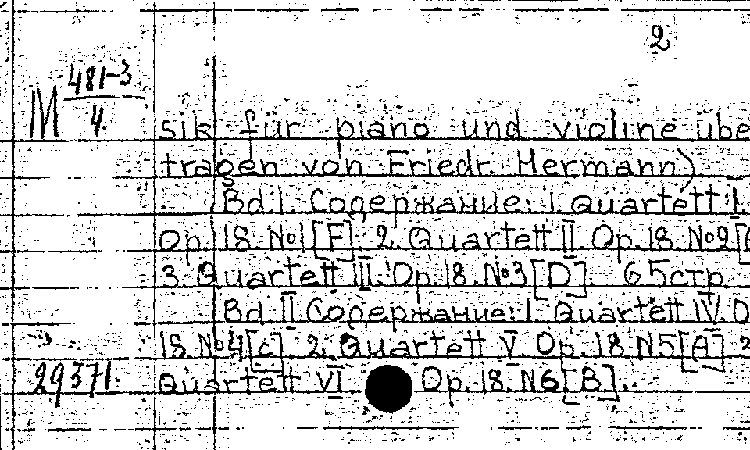 2
M 481-3
4.
sik für piano und violine übe
tragen von Friedr. Hermann)
Bd. I. Содержание: 1. Quartett I.
Op. 18. №1 [F] 2. Quartett II Op. 18. №2 [
3. Quartett III. Op. 18. №3 [D]. 65 стр.
Bd. II Содержание: 1. Quartett IV. O
18. №4 [c] 2. Quartett V Op. 18 N5 [A]
29371. Quartett VI Op. 18. N6 [B].